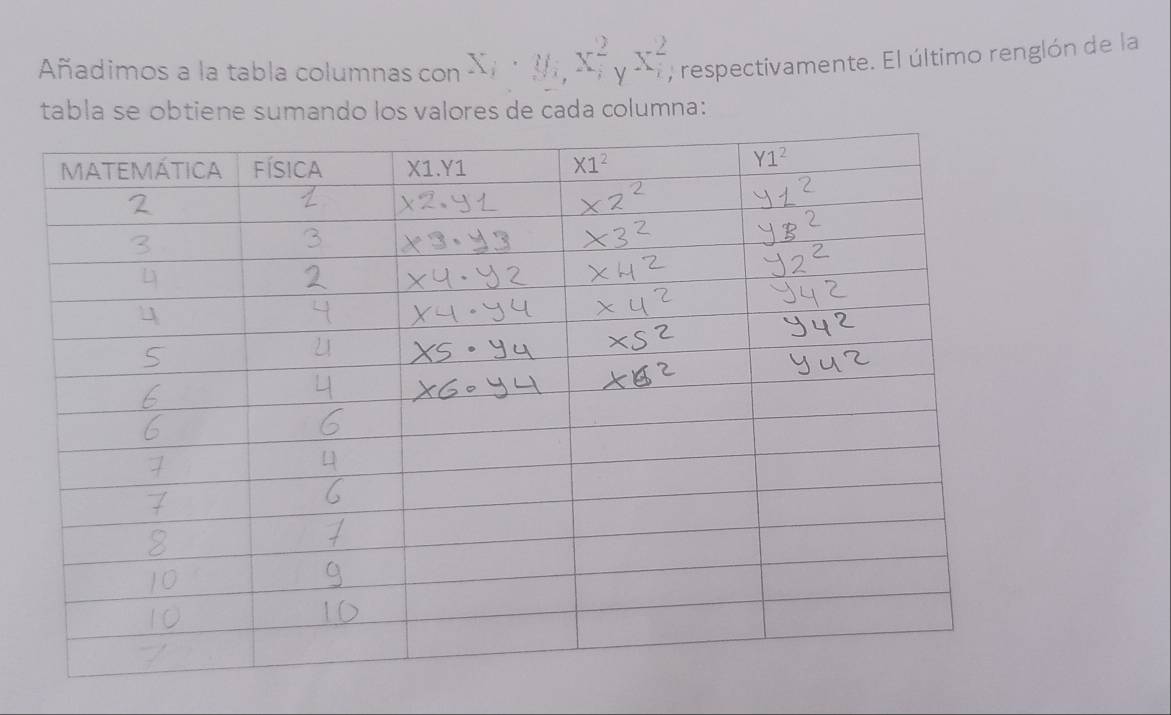 Añadimos a la tabla columnas con Xᵢ · yᵢ, Xᵢ² y Xᵢ², respectivamente. El último renglón de la
tabla se obtiene sumando los valores de cada columna:
MATEMÁTICA FÍSICA X1.Y1 X1² Y1²
2 1 x2.y1 x2² y1²
3 3 x3.y3 x3² y3²
4 2 x4.y2 x4² y2²
4 4 x4.y4 x4² y4²
5 4 x5.y4 x5² y4²
6 4 x6.y4 x6² y4²
6 6
7 4
7 6
8 7
10 9
10 10
7